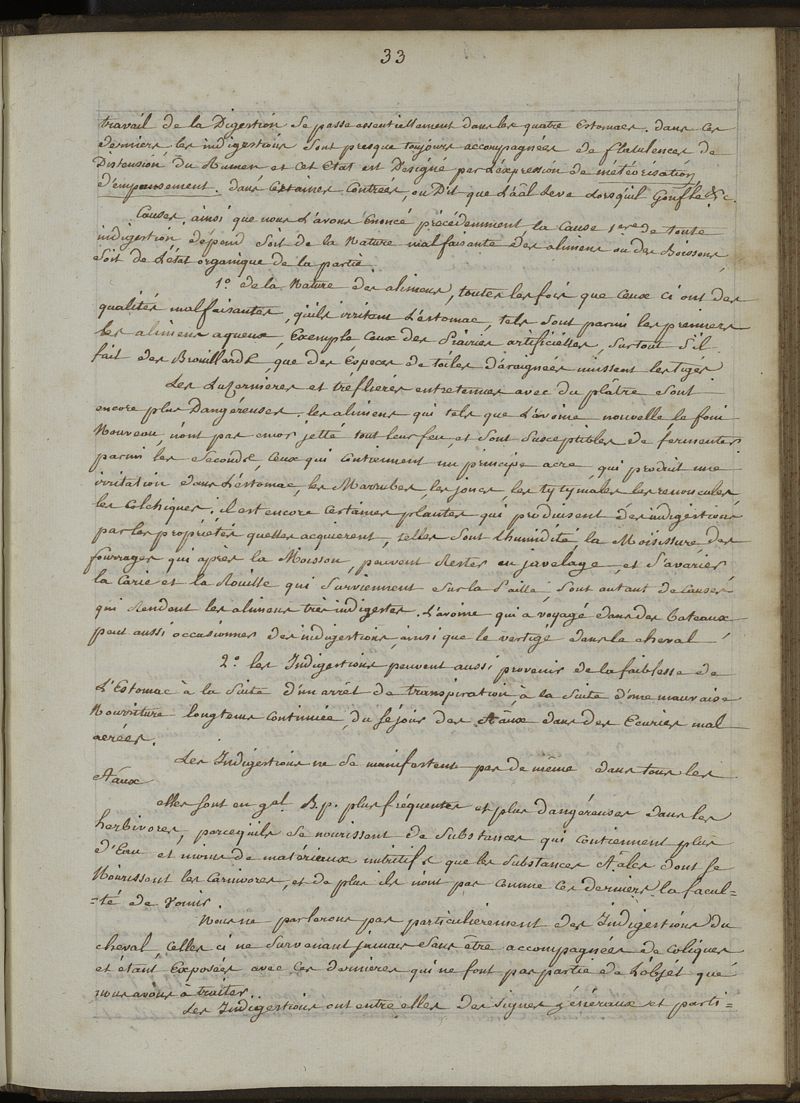 33
travail de la Digestion Se passe essentiellement dans les quatre Estomacs. dans ces
derniers les indigestions sont presque toujours accompagnées de flatulences de
Distension du Rumen et cet Etat est Désigné par L'expression de météorisation
d'empansement. dans certaines Contrées, on Dit que L'aâl Leve Lorsqu'il Gonfle &c.
Causes, ainsi que nous L'avons Enoncé précédemment, la Cause 1ere de toute
indigestion, dépend soit de la Nature malfaisante des alimens ou des Boissons,
Soit de L'état organique de la partie.
1º. de la Nature des alimens, toutes les fois que Ceux ci ont des
qualités malfaisantes, qu'ils irritent L'estomac, tels sont parmi les premiers
Les alimens aqueux, Exemple Ceux des Prairies artificielles, Surtout S'il
fait des Brouillards, que des Especes de toiles d'araignées unissent les tiges
Les Luzernières et tréflières entretenues avec du plâtre Sont
encore plus Dangéreuses. les alimens qui tels que L'avoine nouvelle le foin
Nouveau, n'ont pas encor jetté tout leur feu, et sont susceptibles de fermenter.
parmi les Seconds, Ceux qui contiennent un principe acre, qui produit une
irritation dans L'estomac, les Marrubes, les joncs, les tytymales les renoncules,
les Colchiques; il est encore certaines plantes qui produisent des indigestions
par les propriétés quelles acquierent, telles sont L'humidité, la Moisissure, des
fourrages qui après la Moisson, peuvent Rester en javelage, et S'avarier
la Carie et la Rouille qui Surviennent Sur la Paille, sont autant de Causes
qui Rendent les alimens très indigestes. L'avoine qui a voyagé dans des bateaux
peut aussi occasionner des indigestions, ainsi que le vertige dans le cheval
2º. les Indigestions peuvent aussi provenir de la faiblesse de
L'Estomac à la Suite d'un arrêt de transpiration, à la Suite d'une mauvaise
Nourriture longtems continuée, du séjour des Aâux dans des Ecuries mal
aérées.
Les Indigestions ne Se manifestent pas de même dans tous les
Aâux
elles sont en gal. B.p. plus fréquentes et plus dangéreuses dans les
herbivores, parcequ'ils se nourissent de Substances qui contiennent plus
d'Eau et moins de matériaux nutritifs que les Substances Aâles dont se
Nourissent les Carnivores, et de plus ils n'ont pas comme ces derniers la facul=
=té de vomir.
Nous ne parlerons pas particulierement des Indigestions du
cheval, Celles ci ne Survenant jamais sans être accompagnées de coliques
et étant Exposées avec ces dernières qui ne font pas partie de L'objet que
nous avons à traiter.
Les Indigestions ont entre elles des Signes généraux et parti=